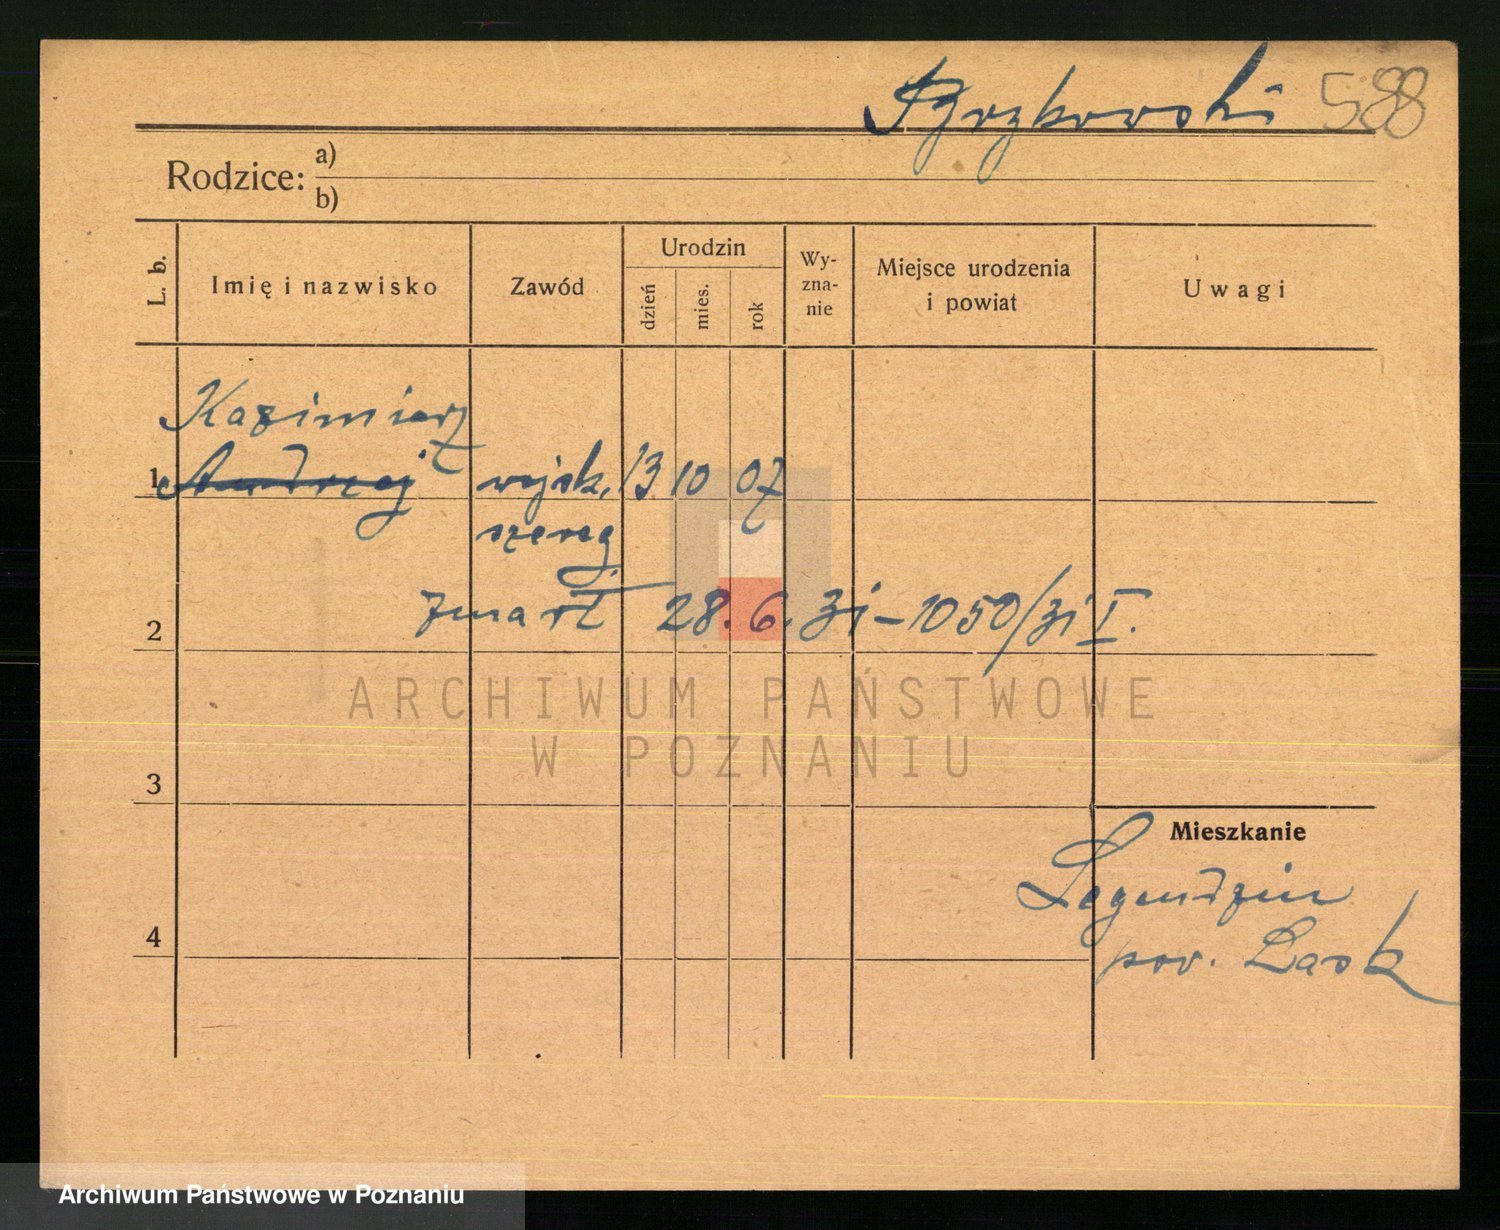 588
Rodzice: a)
b)
L. b.
Imię i nazwisko
Zawód
Urodzin
dzień
mies.
rok
Wy-
zna-
nie
Miejsce urodzenia
i powiat
Uwagi
Kazimierz
1 Andrzej wojsk. 13 10 07
szereg.
2 zmarł 28.6.31-1050/31 I.
ARCHIWUM PAŃSTWOWE
W POZNANIU
3
Mieszkanie
4
pow. Łask
Archiwum Państwowe w Poznaniu